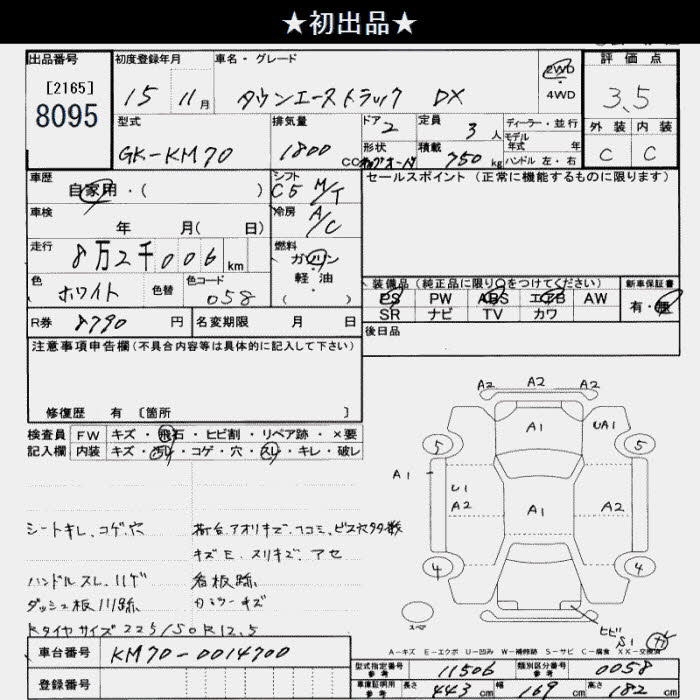 ★初出品★
出品番号
[2165]
8095
初度登録年月
15 11月
車名・グレード
タウンエーストラック DX
2WD
4WD
評価点
3.5
外装 内装
C C
型式
GK-KM70
排気量
1800
CC
ドア
2
形状
定員
3人
積載
750 kg
ディーラー・並行
モデル
年式 年
ハンドル 左・右
車歴
自家用・( )
シフト
C5 M/T
セールスポイント (正常に機能するものに限ります)
車検
年 月( 日)
冷房
A/C
走行
8万2千006 km
燃料
ガソリン
軽・油
( )
色
ホワイト
色替
色コード
058
装備品 (純正品に限り○をつけてください)
PS PW ABS エアB AW
SR ナビ TV カワ
新車保証書
有・無
R券 8790 円
名変期限 月 日
後日品
注意事項申告欄(不具合内容等は具体的に記入して下さい)
修復歴 有 〔箇所 〕
検査員 FW キズ・飛石・ヒビ割・リペア跡・×要
記入欄 内装 キズ・汚れ・コゲ・穴・スレ・キレ・破レ
シートキレ、コゲ、穴
ハンドルスレ、ハゲ
ダッシュ板ハリ跡
Rタイヤサイズ 225/50R12.5
荷台、アオリキズ、凹コミ、ビス穴多数
キズE、スリキズ、アセ
看板跡
カミラーキズ
A2 A2 A2
A1 UA1
5 5
A1
U1
A2 A1 A2
4 4
スペア
ヒビ
S1
A-キズ E-エクボ U-凹み W-補修跡 S-サビ C-腐食 XX-交換済
車台番号 KM70-0014700
登録番号
型式指定番号
参考
11506
類別区分番号
参考
0058
車庫証明用
参考
長さ 443 cm
幅 169 cm
高さ 182 cm